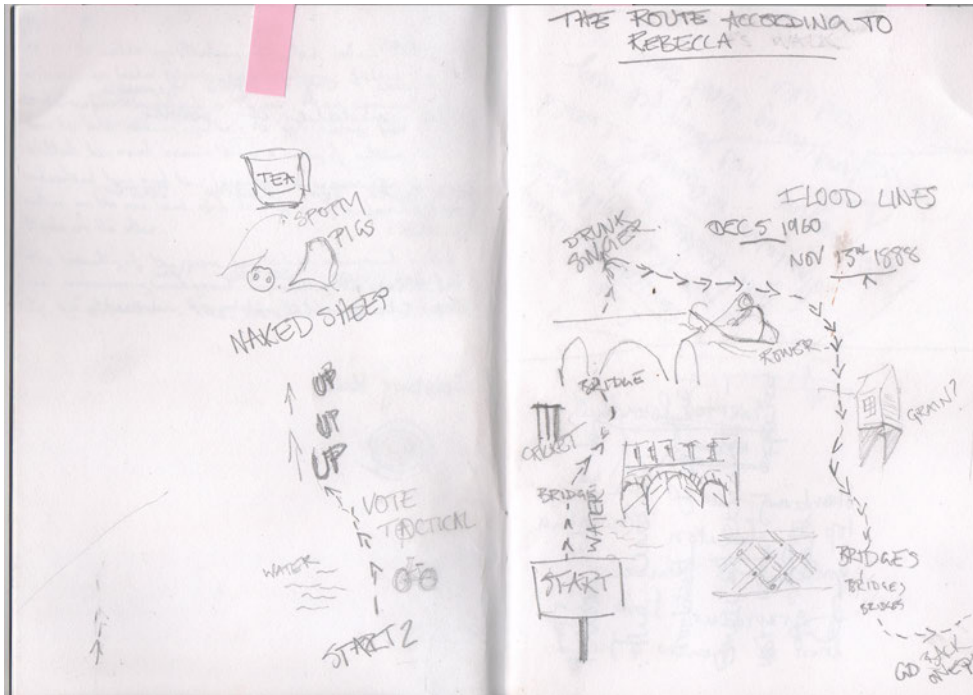 TEA
SPOTTY
PIGS
NAKED SHEEP
UP
UP
UP
VOTE
TACTICAL
WATER
START 2
THE ROUTE ACCORDING TO
REBECCA
FLOOD LINES
DEC 5 1960
NOV 15TH 1888
DRUNK
SINGER
ROWER
BRIDGE
GRAIN?
CRICKET
BRIDGE
WATER
START
BRIDGES
BRIDGES
BRIDGES
GO BACK